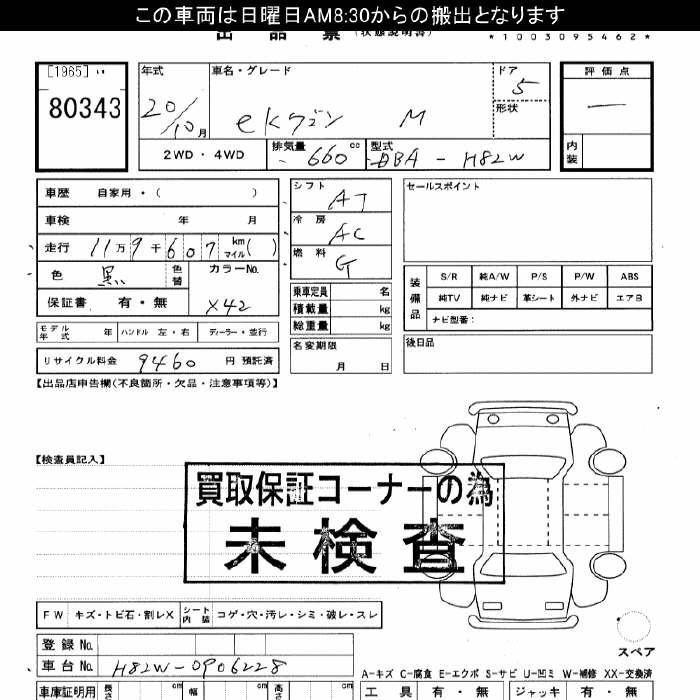 この車両は日曜日AM8:30からの搬出となります
出品票 (状態説明書)
*1003095462*
[1965]
80343
年式 20/10月
車名・グレード ekワゴン M
ドア 5
形状
評価点 —
内装
2WD・4WD
排気量 660 cc
型式 DBA-H82W
車歴 自家用・( )
車検 年 月
走行 11万9千607 km マイル ( )
色 黒 色替
カラーNo. X42
保証書 有・無
シフト AT
冷房 AC
燃料 G
セールスポイント
乗車定員 名
積載量 kg
総重量 kg
装備品
S/R 純A/W P/S P/W ABS
純TV 純ナビ 革シート 外ナビ エアB
ナビ型番:
モデル年式 年 ハンドル 左・右 ディーラー・並行
名変期限 月 日
後日品
リサイクル料金 9460 円 預託済
【出品店申告欄(不良箇所・欠品・注意事項等)】
【検査員記入】
買取保証コーナーの為
未検査
FW キズ・トビ石・割レX シート内装 コゲ・穴・汚レ・シミ・破レ・スレ
スペア
登録No.
車台No. H82W-0906228
A-キズ C-腐食 E-エクボ S-サビ U-凹ミ W-補修 XX-交換済
車庫証明用 長さ cm 幅 cm 高さ cm
工具 有・無 ジャッキ 有・無